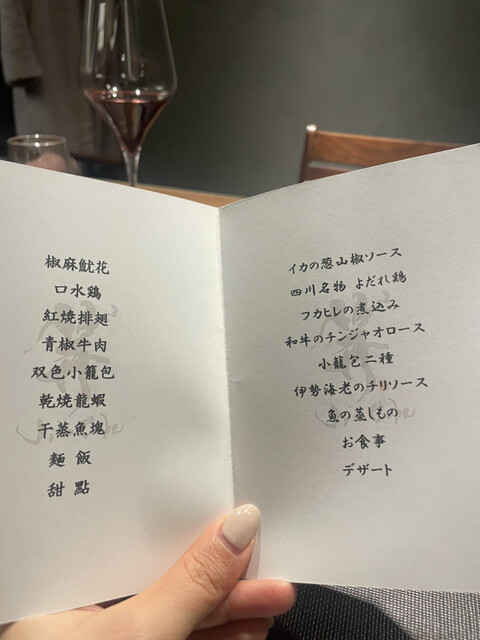 椒麻魷花
口水鶏
紅焼排翅
青椒牛肉
双色小籠包
乾焼龍蝦
干蒸魚塊
麵 飯
甜 點
イカの葱山椒ソース
四川名物 よだれ鶏
フカヒレの煮込み
和牛のチンジャオロース
小籠包二種
伊勢海老のチリソース
魚の蒸しもの
お食事
デザート